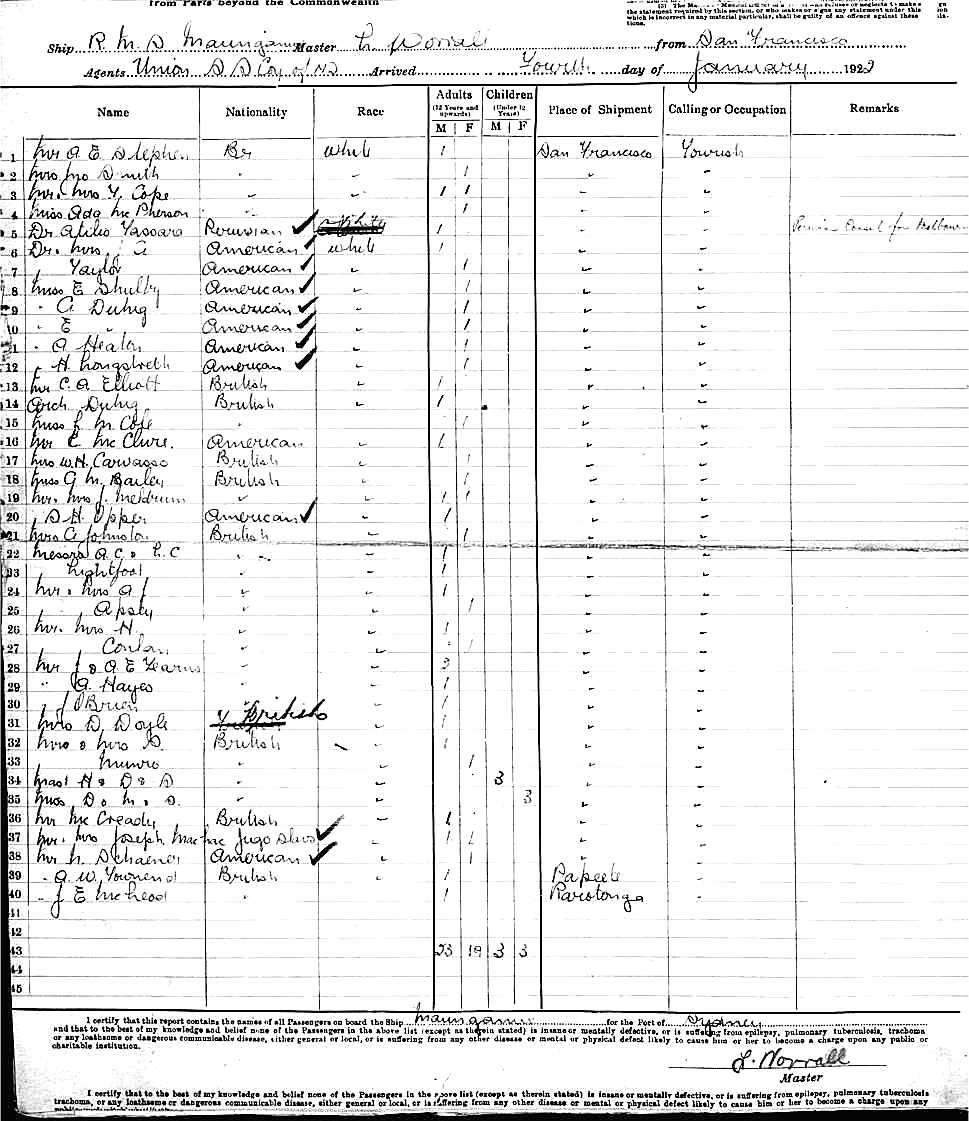 from Parts beyond the Commonwealth
the statement required by this section, or who makes or gives any statement under this
which is incorrect in any material particular, shall be guilty of an offence against these
Ship R. M. S Maunganui Master L. Worrall from San Francisco
Agents Union S S Coy of NZ Arrived Fourth day of January 1922
Name Nationality Race Adults (12 Years and upwards) Children (Under 12 Years) Place of Shipment Calling or Occupation Remarks
M F M F
1 Mr A. E. Stephen Br White 1 San Francisco Tourist
2 Mrs Smith " " 1 " "
3 Mr. Mrs Y. Cope " " 1 1 " "
4 Miss Ada Mc Pherson " 1
5 Dr. Atilio Tassara Peruvian ✓ White 1 " " Peruvian Consul for Melbourne
6 Dr. Mrs, A American ✓ White 1 " "
7 , Taylor American ✓ " 1 " "
8 Miss E Shultz American ✓ " 1 " "
9 " A. Duhig American ✓ " 1 " "
10 " E " American ✓ " 1 " "
11 " A Heaton American ✓ " 1 " "
12 " H. Longstreth American ✓ " 1 " "
13 Mr C. A. Elliott British " 1 " "
14 Arch. Duhig British " 1 " "
15 Miss L. M. Cope " 1 " "
16 Mr E. Mc Clure. American " 1 " "
17 Mrs W. H. Carwasso British " 1 " "
18 Miss G M. Bailey British " 1 " "
19 Mr. Mrs J. Meldrum " " 1 1 " "
20 , S. H. Opper American ✓ " 1 " "
21 Mrs A Johnston British " 1 " "
22 Messrs A. C. & L. C " " 1 " "
23 , Lightfoot " 1 " "
24 Mr. & Mrs A J " " 1 " "
25 , , Apsey " " 1 " "
26 Mr. Mrs H. " " 1 " "
27 , Conlan " " 1 " "
28 Mr J & A. E Fearns " " 3 " "
29 " A. Hayes " " 1 " "
30 , J O'Brien " 1 " "
31 Mrs D. Doyle British " 1 " "
32 Mrs & Mrs D. British " 1 " "
33 , Munro " " 1 " "
34 Mast H & D & D " " 3 " "
35 Miss, D. M. & D. " " 3 " "
36 Mr Mc Cready British " 1 " "
37 Mr. Mrs Joseph Jugo Slav ✓ " 1 1 " "
38 Mr American ✓ " 1 " "
39 " A. W. Townend British " 1 Papeete "
40 " J E " 1 Rarotonga "
41
42
43 23 19 3 3
44
45
I certify that this report contains the names of all Passengers on board the Ship Maunganui for the Port of Sydney
and that to the best of my knowledge and belief none of the Passengers in the above list (except as therein stated) is insane or mentally defective, or is suffering from epilepsy, pulmonary tuberculosis, trachoma
or any loathsome or dangerous communicable disease, either general or local, or is suffering from any other disease or mental or physical defect likely to cause him or her to become a charge upon any public or
charitable institution.
L. Worrall
Master
I certify that to the best of my knowledge and belief none of the Passengers in the above list (except as therein stated) is insane or mentally defective, or is suffering from epilepsy, pulmonary tuberculosis
trachoma, or any loathsome or dangerous communicable disease, either general or local, or is suffering from any other disease or mental or physical defect likely to cause him or her to become a charge upon any